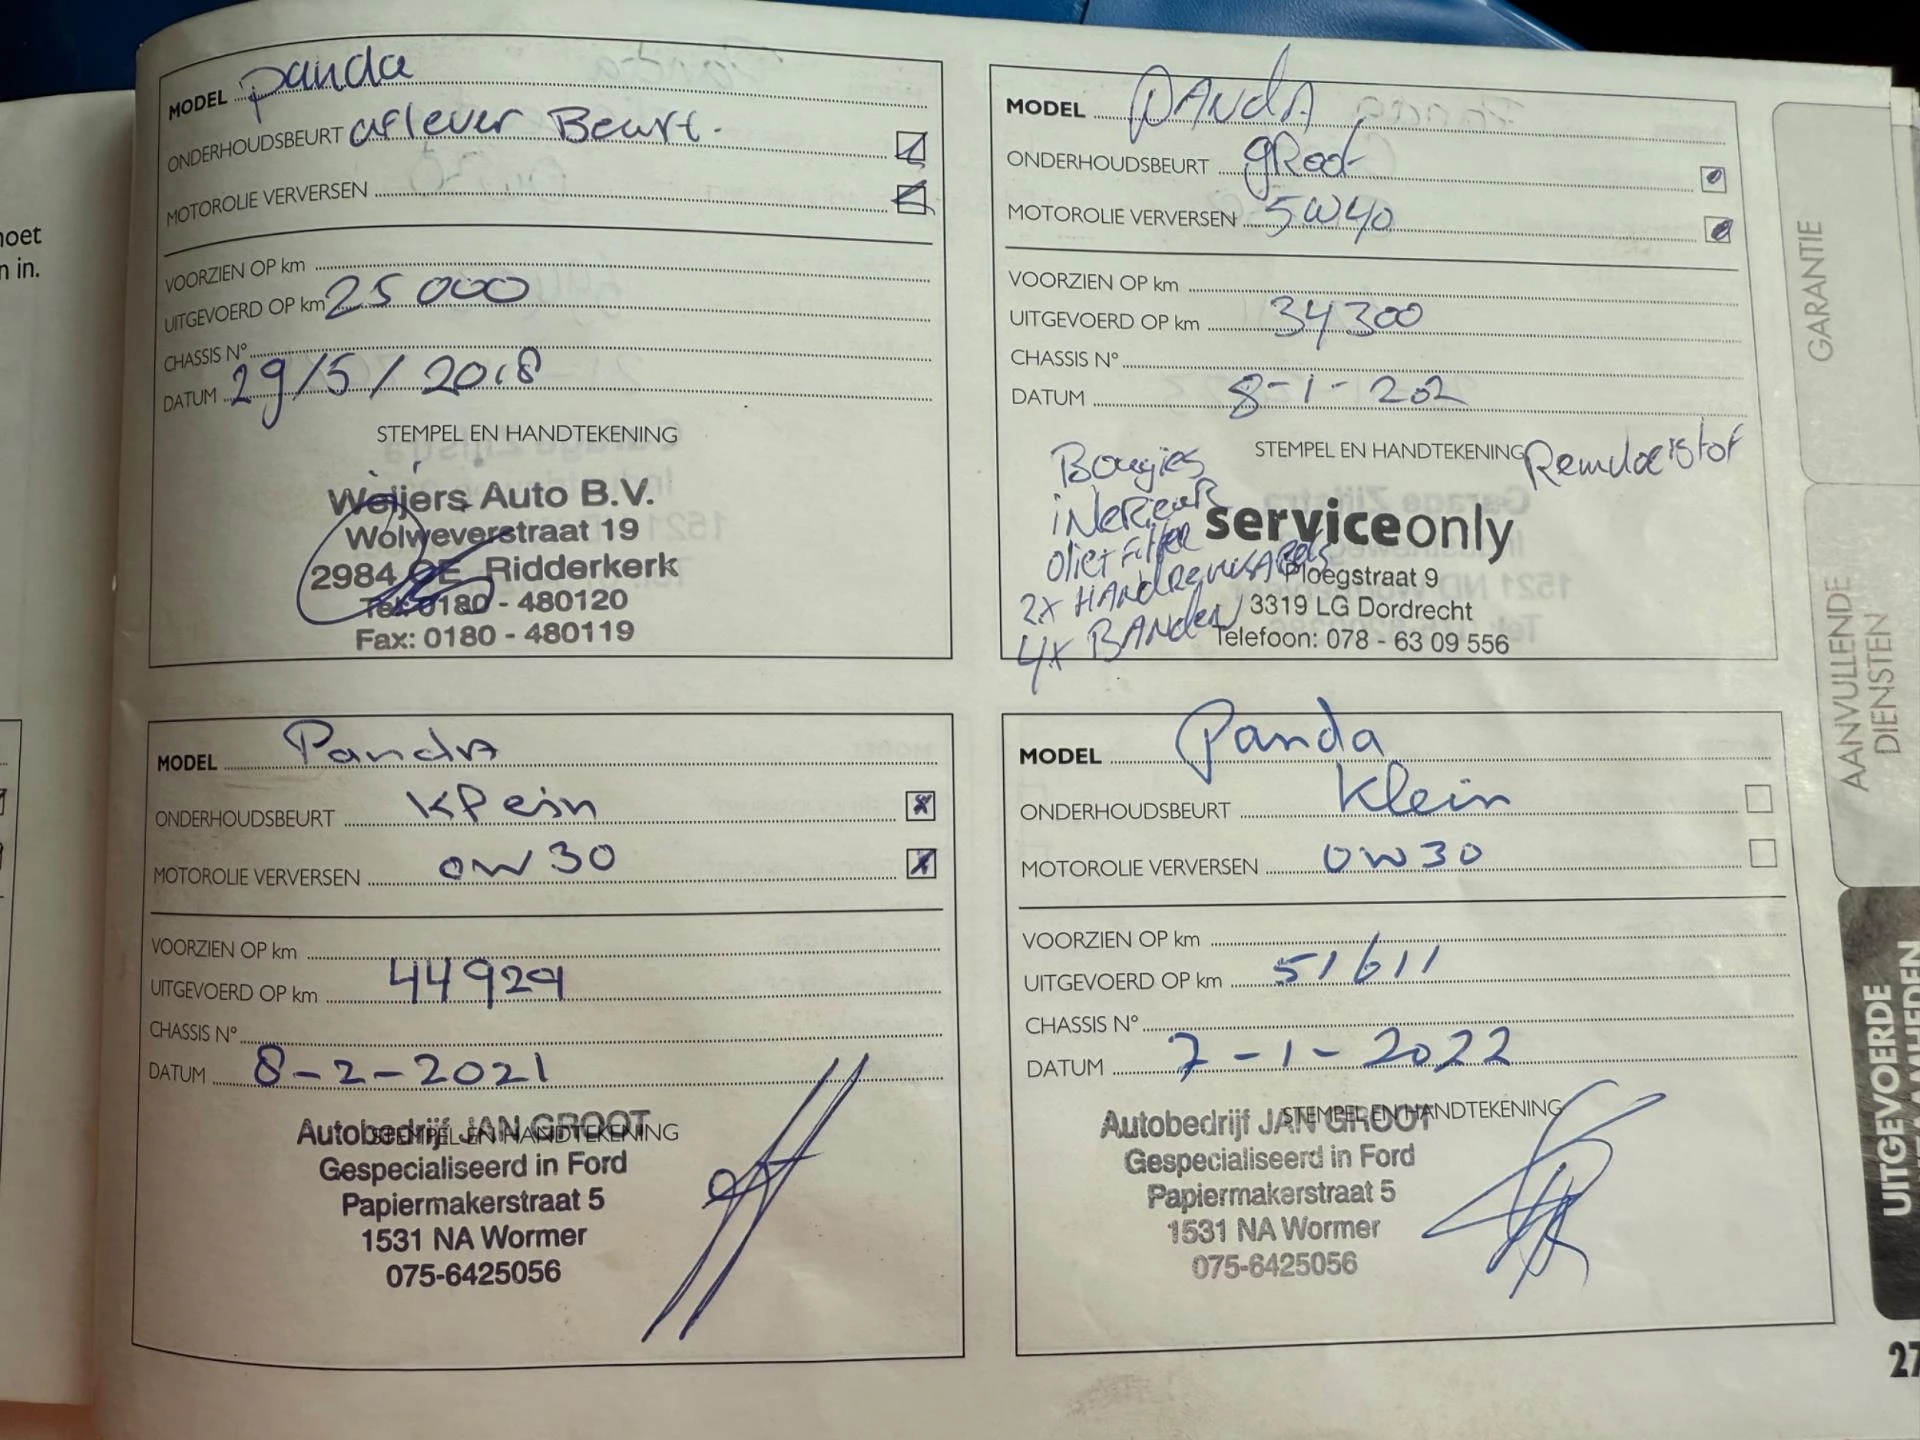 noet
n in.
MODEL panda
ONDERHOUDSBEURT aflever Beurt.
MOTOROLIE VERVERSEN
VOORZIEN OP km
UITGEVOERD OP km 25000
CHASSIS N°
DATUM 29/5/2018
STEMPEL EN HANDTEKENING
Weijers Auto B.V.
Wolweverstraat 19
2984 Ridderkerk
Tel: 0180 - 480120
Fax: 0180 - 480119
MODEL PANdA
ONDERHOUDSBEURT gRoot
MOTOROLIE VERVERSEN 5W40
VOORZIEN OP km
UITGEVOERD OP km 34300
CHASSIS N°
DATUM 8-1-202
STEMPEL EN HANDTEKENING Remvloeistof
Bougies
iNteRieuR
olie+Filter
2x HANdRemKABels
4x BANdeN
serviceonly
Ploegstraat 9
3319 LG Dordrecht
Telefoon: 078 - 63 09 556
MODEL PandA
ONDERHOUDSBEURT Klein
MOTOROLIE VERVERSEN 0W30
VOORZIEN OP km
UITGEVOERD OP km 44929
CHASSIS N°
DATUM 8-2-2021
STEMPEL EN HANDTEKENING
Autobedrijf JAN GROOT
Gespecialiseerd in Ford
Papiermakerstraat 5
1531 NA Wormer
075-6425056
MODEL Panda
ONDERHOUDSBEURT Klein
MOTOROLIE VERVERSEN 0W30
VOORZIEN OP km
UITGEVOERD OP km 51611
CHASSIS N°
DATUM 7-1-2022
STEMPEL EN HANDTEKENING
Autobedrijf JAN GROOT
Gespecialiseerd in Ford
Papiermakerstraat 5
1531 NA Wormer
075-6425056
GARANTIE
AANVULLENDE
DIENSTEN
UITGEVOERDE
27